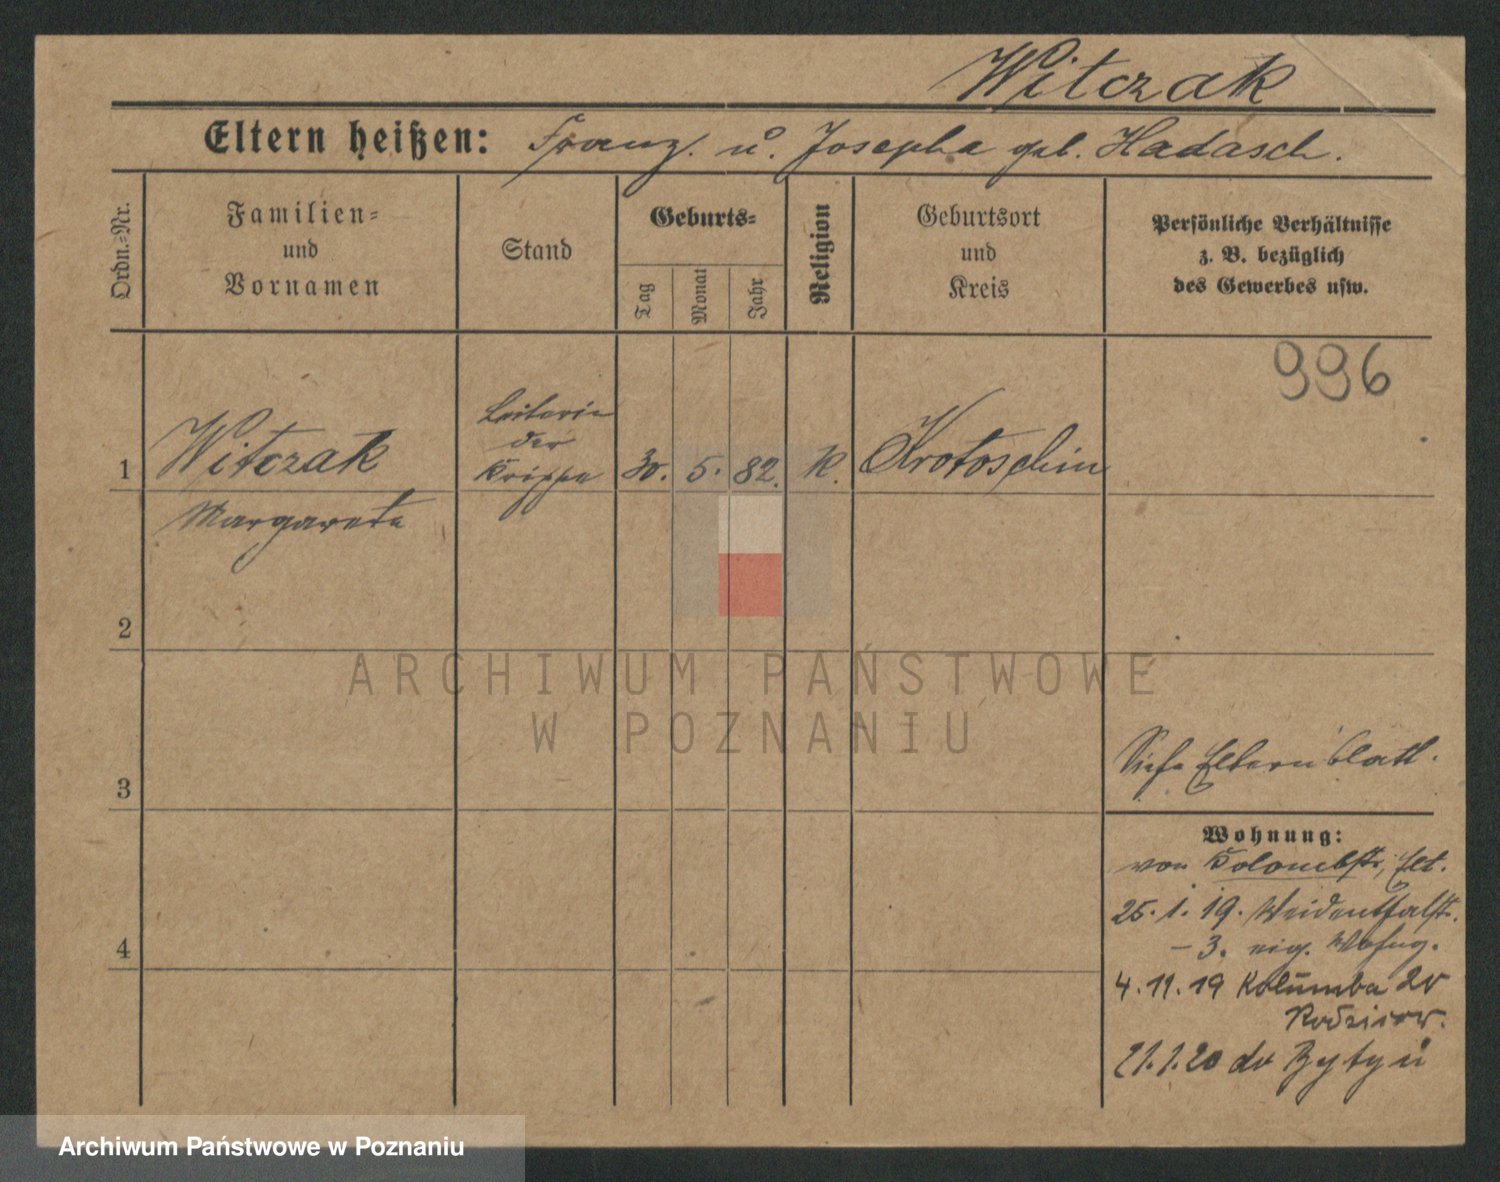 Witczak
Eltern heißen: Franz. u. Josepha geb. Hadasch.
Ordn.=Nr.
Familien=
und
Vornamen
Stand
Geburts=
Tag
Monat
Jahr
Religion
Geburtsort
und
Kreis
Persönliche Verhältnisse
z. B. bezüglich
des Gewerbes usw.
996
1
Witczak
Margarete
Leiterin
der
Krippe
30. 5. 82. K. Krotoschin
2
ARCHIWUM PAŃSTWOWE
W POZNANIU
3
Siehe Elternblatt.
Wohnung:
von Kolombstr., Elt.
25. 1. 19.
- 3. eig. Wohng.
4
4. 11. 19 Kolumba
21. 1. 20 do Zytyń
Archiwum Państwowe w Poznaniu